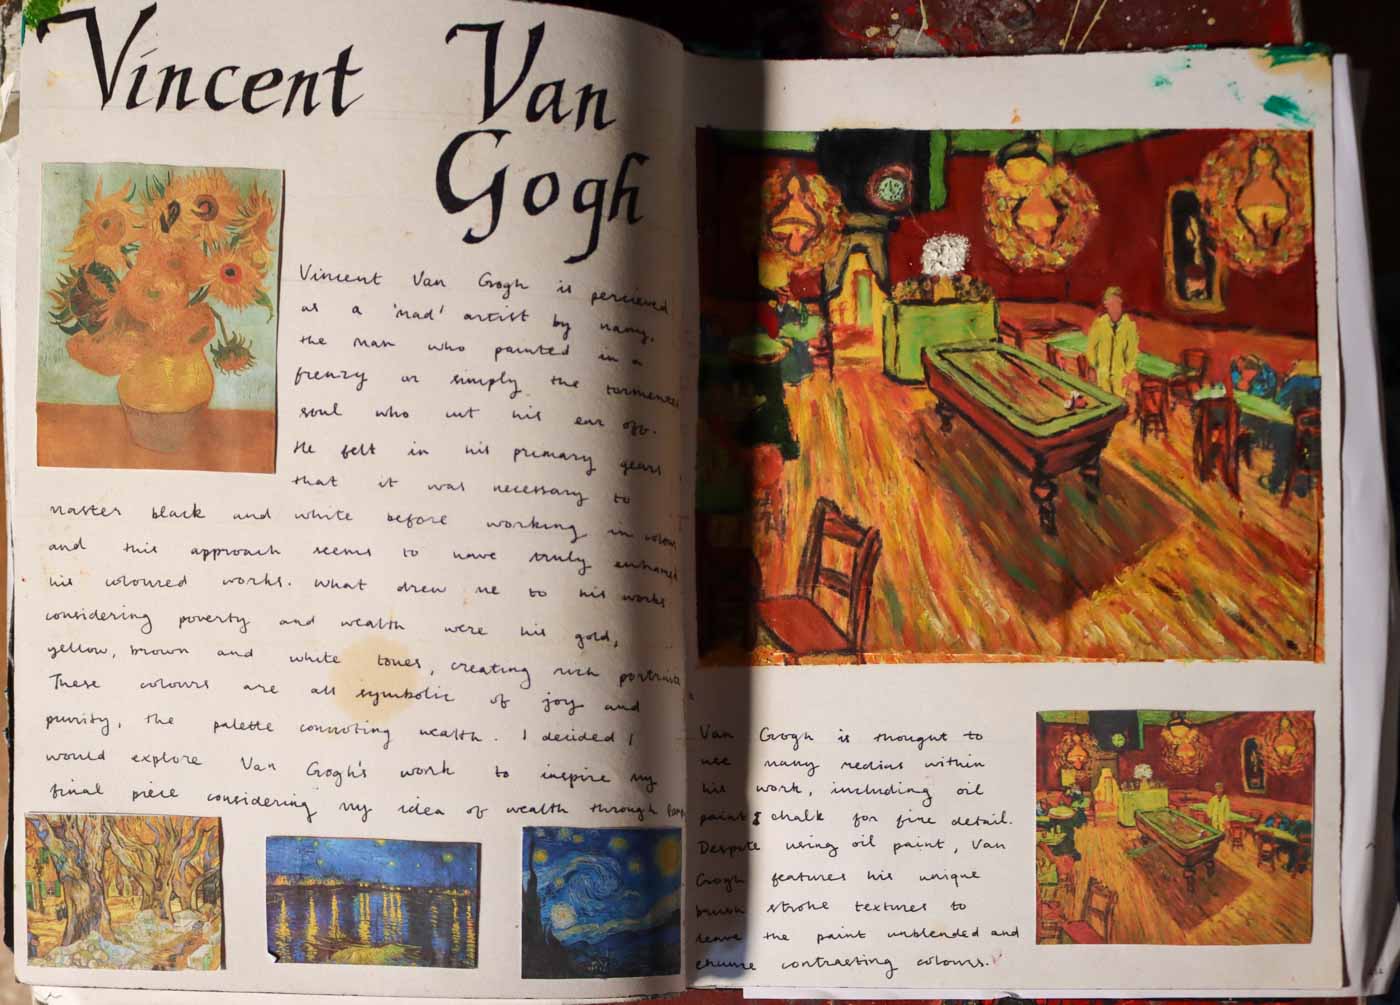 Vincent Van
Gogh
Vincent Van Gogh is percieved
as a 'mad' artist by many,
the man who painted in a
frenzy or simply the tormented
soul who cut his ear off.
He felt in his primary years
that it was necessary to
master black and white before working in colour
and this approach seems to have truly enhanced
his coloured works. What drew me to his works
considering poverty and wealth were his gold,
yellow, brown and white tones, creating rich portraits
These colours are all symbolic of joy and
purity, the palette connoting wealth. I decided I
would explore Van Gogh's work to inspire my
final piece considering my idea of wealth through
Van Gogh is thought to
use many medias within
his work, including oil
paint & chalk for fine detail.
Despite using oil paint, Van
Gogh features his unique
brush stroke textures to
leave the paint unblended and
chunk contrasting colours.